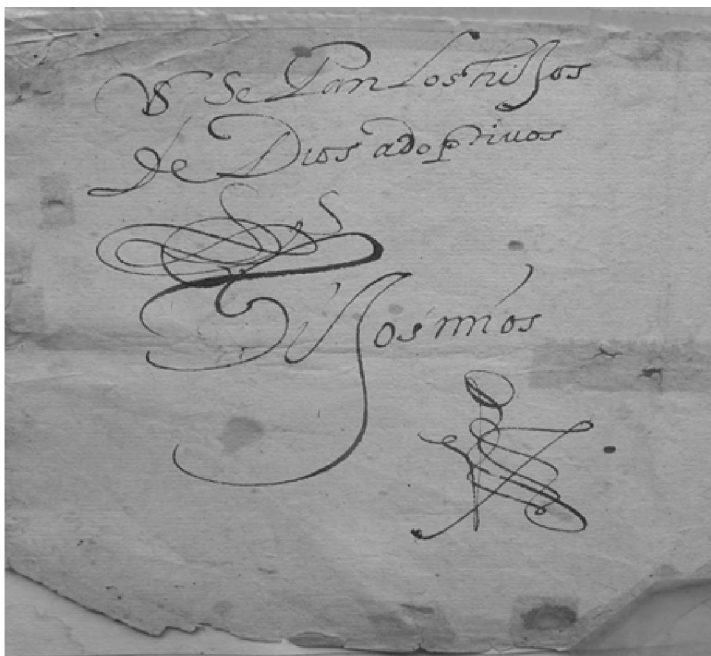 Y Se Pan Los hiJos
de Dios adoptivos
hiJos mios